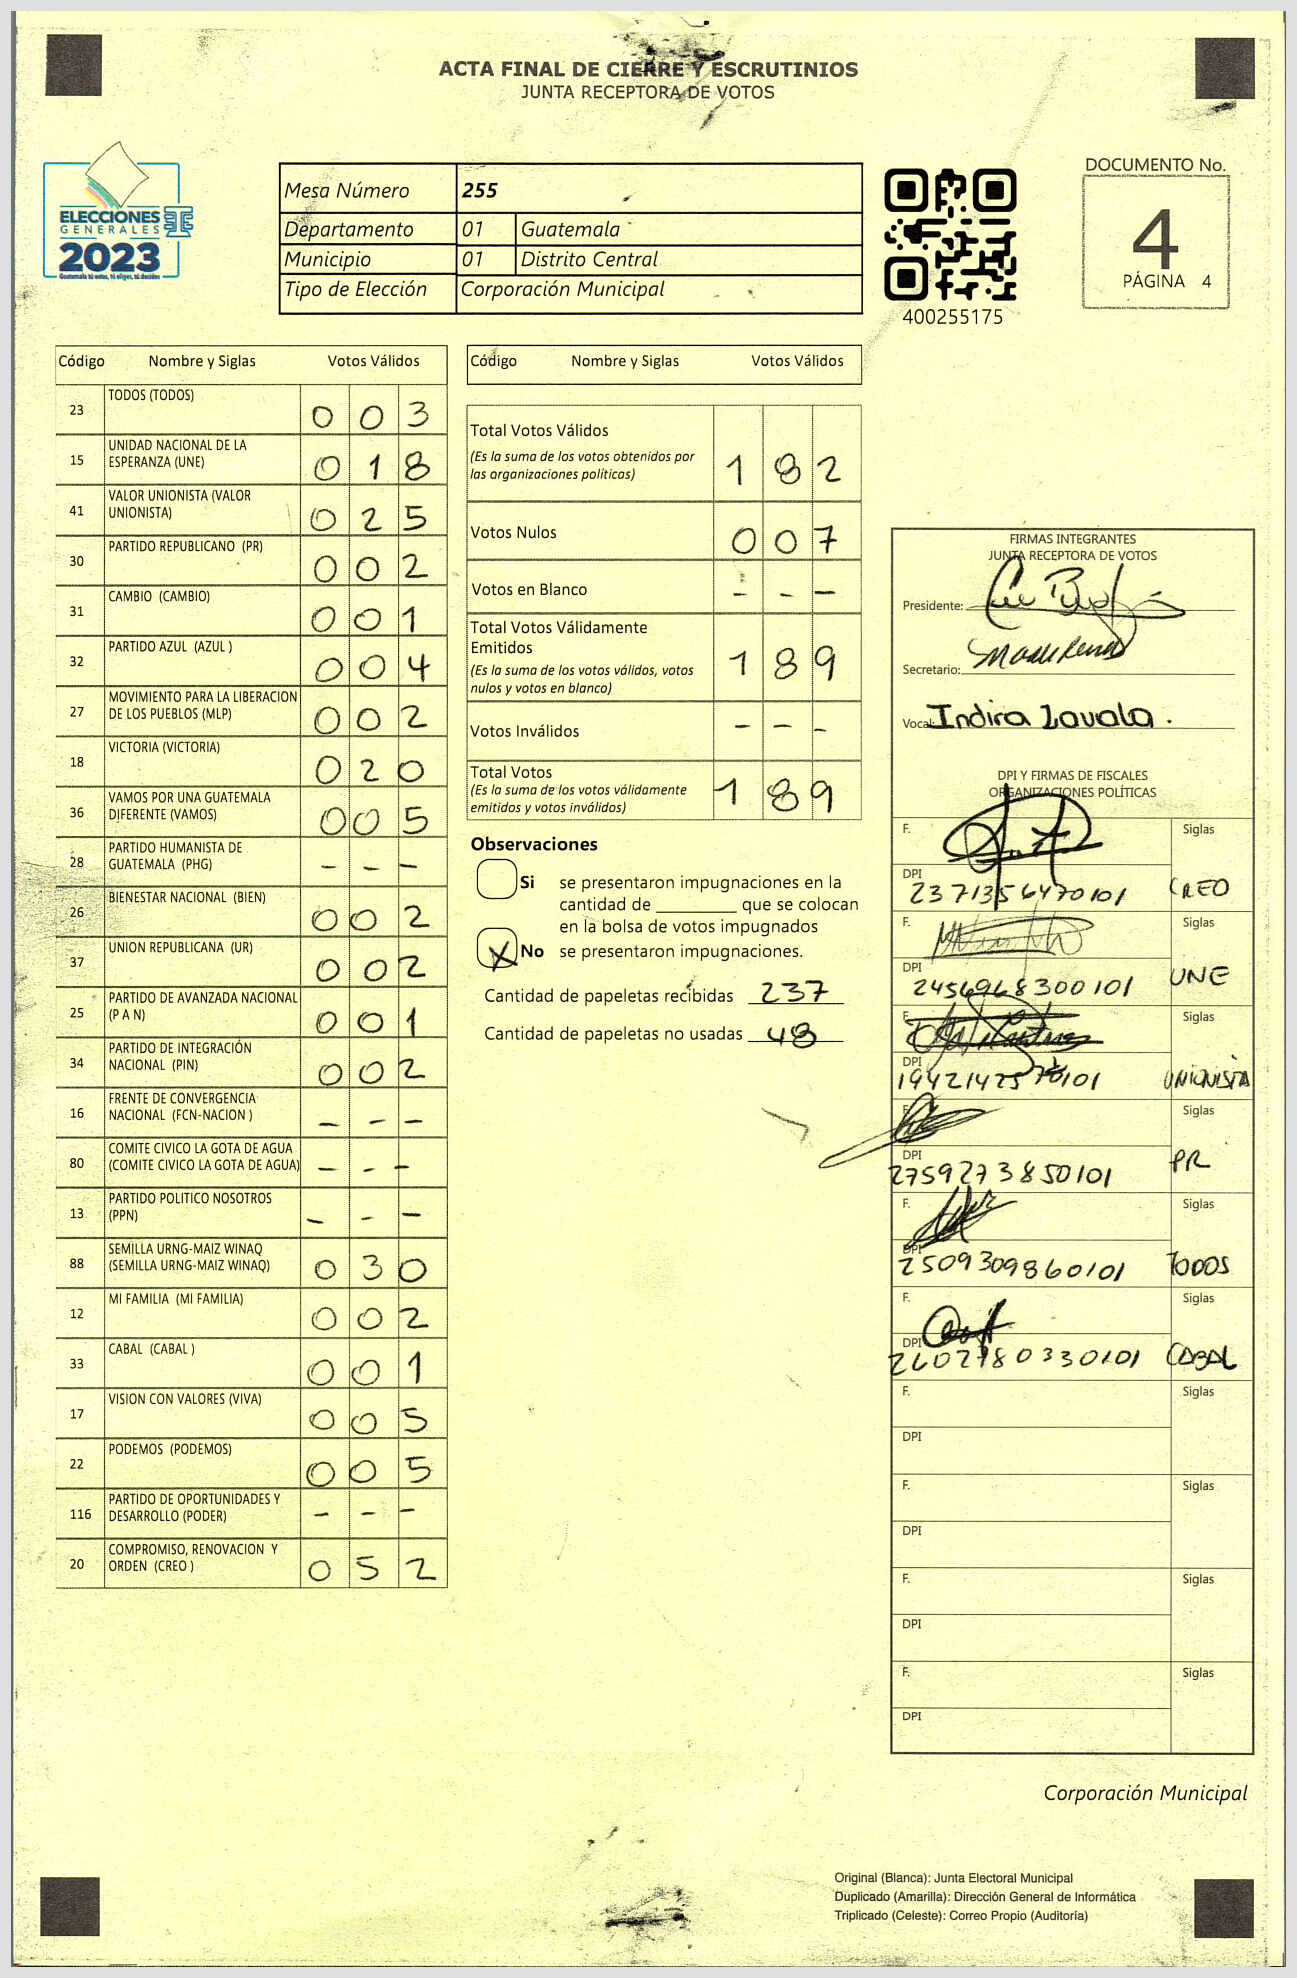 ACTA FINAL DE CIERRE Y ESCRUTINIOS
JUNTA RECEPTORA DE VOTOS
ELECCIONES
GENERALES
2023
Guatemala tú votas, tú eliges, tú decides
Mesa Número 255
Departamento 01 Guatemala
Municipio 01 Distrito Central
Tipo de Elección Corporación Municipal
400255175
DOCUMENTO No.
4
PÁGINA 4
Código Nombre y Siglas Votos Válidos
23 TODOS (TODOS) 0 0 3
15 UNIDAD NACIONAL DE LA ESPERANZA (UNE) 0 1 8
41 VALOR UNIONISTA (VALOR UNIONISTA) 0 2 5
30 PARTIDO REPUBLICANO (PR) 0 0 2
31 CAMBIO (CAMBIO) 0 0 1
32 PARTIDO AZUL (AZUL ) 0 0 4
27 MOVIMIENTO PARA LA LIBERACION DE LOS PUEBLOS (MLP) 0 0 2
18 VICTORIA (VICTORIA) 0 2 0
36 VAMOS POR UNA GUATEMALA DIFERENTE (VAMOS) 0 0 5
28 PARTIDO HUMANISTA DE GUATEMALA (PHG) - - -
26 BIENESTAR NACIONAL (BIEN) 0 0 2
37 UNION REPUBLICANA (UR) 0 0 2
25 PARTIDO DE AVANZADA NACIONAL (P A N) 0 0 1
34 PARTIDO DE INTEGRACIÓN NACIONAL (PIN) 0 0 2
16 FRENTE DE CONVERGENCIA NACIONAL (FCN-NACION ) - - -
80 COMITE CIVICO LA GOTA DE AGUA (COMITE CIVICO LA GOTA DE AGUA) - - -
13 PARTIDO POLITICO NOSOTROS (PPN) - - -
88 SEMILLA URNG-MAIZ WINAQ (SEMILLA URNG-MAIZ WINAQ) 0 3 0
12 MI FAMILIA (MI FAMILIA) 0 0 2
33 CABAL (CABAL ) 0 0 1
17 VISION CON VALORES (VIVA) 0 0 5
22 PODEMOS (PODEMOS) 0 0 5
116 PARTIDO DE OPORTUNIDADES Y DESARROLLO (PODER) - - -
20 COMPROMISO, RENOVACION Y ORDEN (CREO ) 0 5 2
Código Nombre y Siglas Votos Válidos
Total Votos Válidos 1 8 2
(Es la suma de los votos obtenidos por
las organizaciones políticas)
Votos Nulos 0 0 7
Votos en Blanco - - -
Total Votos Válidamente
Emitidos 1 8 9
(Es la suma de los votos válidos, votos
nulos y votos en blanco)
Votos Inválidos - - -
Total Votos 1 8 9
(Es la suma de los votos válidamente
emitidos y votos inválidos)
Observaciones
Si se presentaron impugnaciones en la
cantidad de ________ que se colocan
en la bolsa de votos impugnados
X No se presentaron impugnaciones.
Cantidad de papeletas recibidas 237
Cantidad de papeletas no usadas 48
FIRMAS INTEGRANTES
JUNTA RECEPTORA DE VOTOS
Presidente:
Secretario:
Vocal: Indira Zavala.
DPI Y FIRMAS DE FISCALES
ORGANIZACIONES POLÍTICAS
F. Siglas
DPI 2371356470101 CREO
F. Siglas
DPI 2456968300101 UNE
F. Siglas
DPI UNIONISTA
F. Siglas
DPI 2759273850101 PR
F. Siglas
DPI 2509309860101 TODOS
F. Siglas
DPI 2602780330101 CABAL
F. Siglas
DPI
F. Siglas
DPI
F. Siglas
DPI
F. Siglas
DPI
Corporación Municipal
Original (Blanca): Junta Electoral Municipal
Duplicado (Amarilla): Dirección General de Informática
Triplicado (Celeste): Correo Propio (Auditoría)